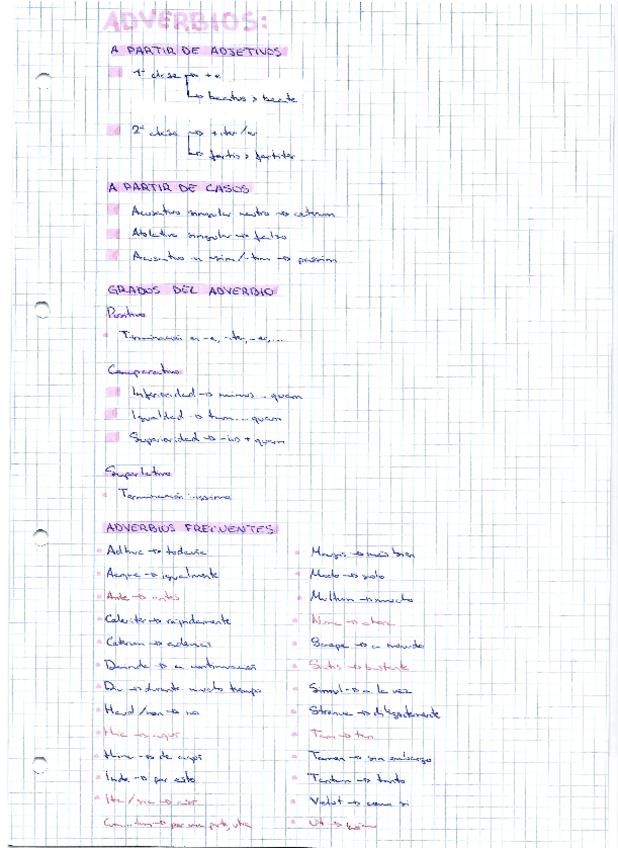 ADVERBIOS:
A PARTIR DE ADJETIVOS
1ª clase → + e
↳ beatus > beate
2ª clase → + ter/er
↳ fortis > fortiter
A PARTIR DE CASOS
Acusativo singular neutro → ceterum
Ablativo singular → falso
Acusativo en -sim/-tim → passim
GRADOS DEL ADVERBIO
Positivo
Terminación en -e, -ter, -er,...
Comparativo
Inferioridad → minus...quam
Igualdad → tam...quam
Superioridad → -ius + quam
Superlativo
Terminación -issime
ADVERBIOS FRECUENTES
Adhuc → todavía
Aeque → igualmente
Ante → antes
Celeriter → rápidamente
Ceterum → además
Deinde → a continuación
Diu → durante mucho tiempo
Haud/non → no
Hic → aquí
Hinc → de aquí
Inde → por esto
Ita/sic → así
Cum...tum → por una parte, otra
Magis → más bien
Modo → solo
Multum → mucho
Nunc → ahora
Saepe → a menudo
Satis → bastante
Simul → a la vez
Strenue → diligentemente
Tam → tan
Tamen → sin embargo
Tantum → tanto
Velut → como si
Ut → como